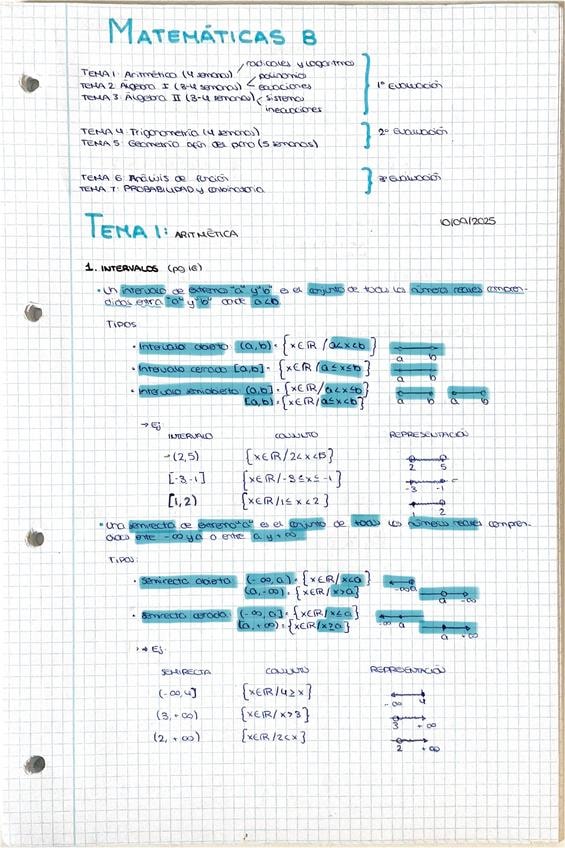 MATEMÁTICAS B
radicales y logaritmos
TEMA 1: Aritmética (4 semanas) polinomios
TEMA 2 Álgebra I (3-4 semanas) ecuaciones
TEMA 3: Álgebra II (3-4 semanas) sistemas
inecuaciones
1ª Evaluación
TEMA 4: Trigonometría (4 semanas)
TEMA 5: Geometría afín del plano (5 semanas)
2ª Evaluación
TEMA 6: Análisis de función
TEMA 7: PROBABILIDAD y combinatoria
3ª Evaluación
TEMA 1: ARITMÉTICA
10/09/2025
1. INTERVALOS (pg 16)
• Un intervalo de extremo "a" y "b" es el conjunto de todos los números reales compren-
didos entre "a" y "b" donde a<b
TIPOS
• Intervalo abierto: (a,b) = {x∈ℝ / a<x<b} a b
• Intervalo cerrado [a,b] = {x∈ℝ / a≤x≤b} a b
• Intervalo semiabierto (a,b] = {x∈ℝ / a<x≤b} a b a b
[a,b) = {x∈ℝ / a≤x<b}
→ Ej:
INTERVALO CONJUNTO REPRESENTACIÓN
-(2,5) {x∈ℝ / 2<x<5} 2 5
[-3-1] {x∈ℝ / -3≤x≤-1} -3 -1
[1,2) {x∈ℝ / 1≤x<2} 1 2
• Una semirecta de extremo "a" es el conjunto de todos los números reales compren-
didos entre -∞ y a o entre a y +∞
TIPOS:
• Semirecta abierta (-∞,a) = {x∈ℝ / x<a} -∞ a
(a,-∞) = {x∈ℝ / x>a} a -∞
• Semirecta cerrada (-∞,a] = {x∈ℝ / x≤a} -∞ a
[a,+∞) = {x∈ℝ / x≥a} a +∞
→ Ej:
SEMIRECTA CONJUNTO REPRESENTACIÓN
(-∞,4] {x∈ℝ / 4≥x} -∞ 4
(3,+∞) {x∈ℝ / x>3} 3 +∞
(2,+∞) {x∈ℝ / 2<x} 2 +∞